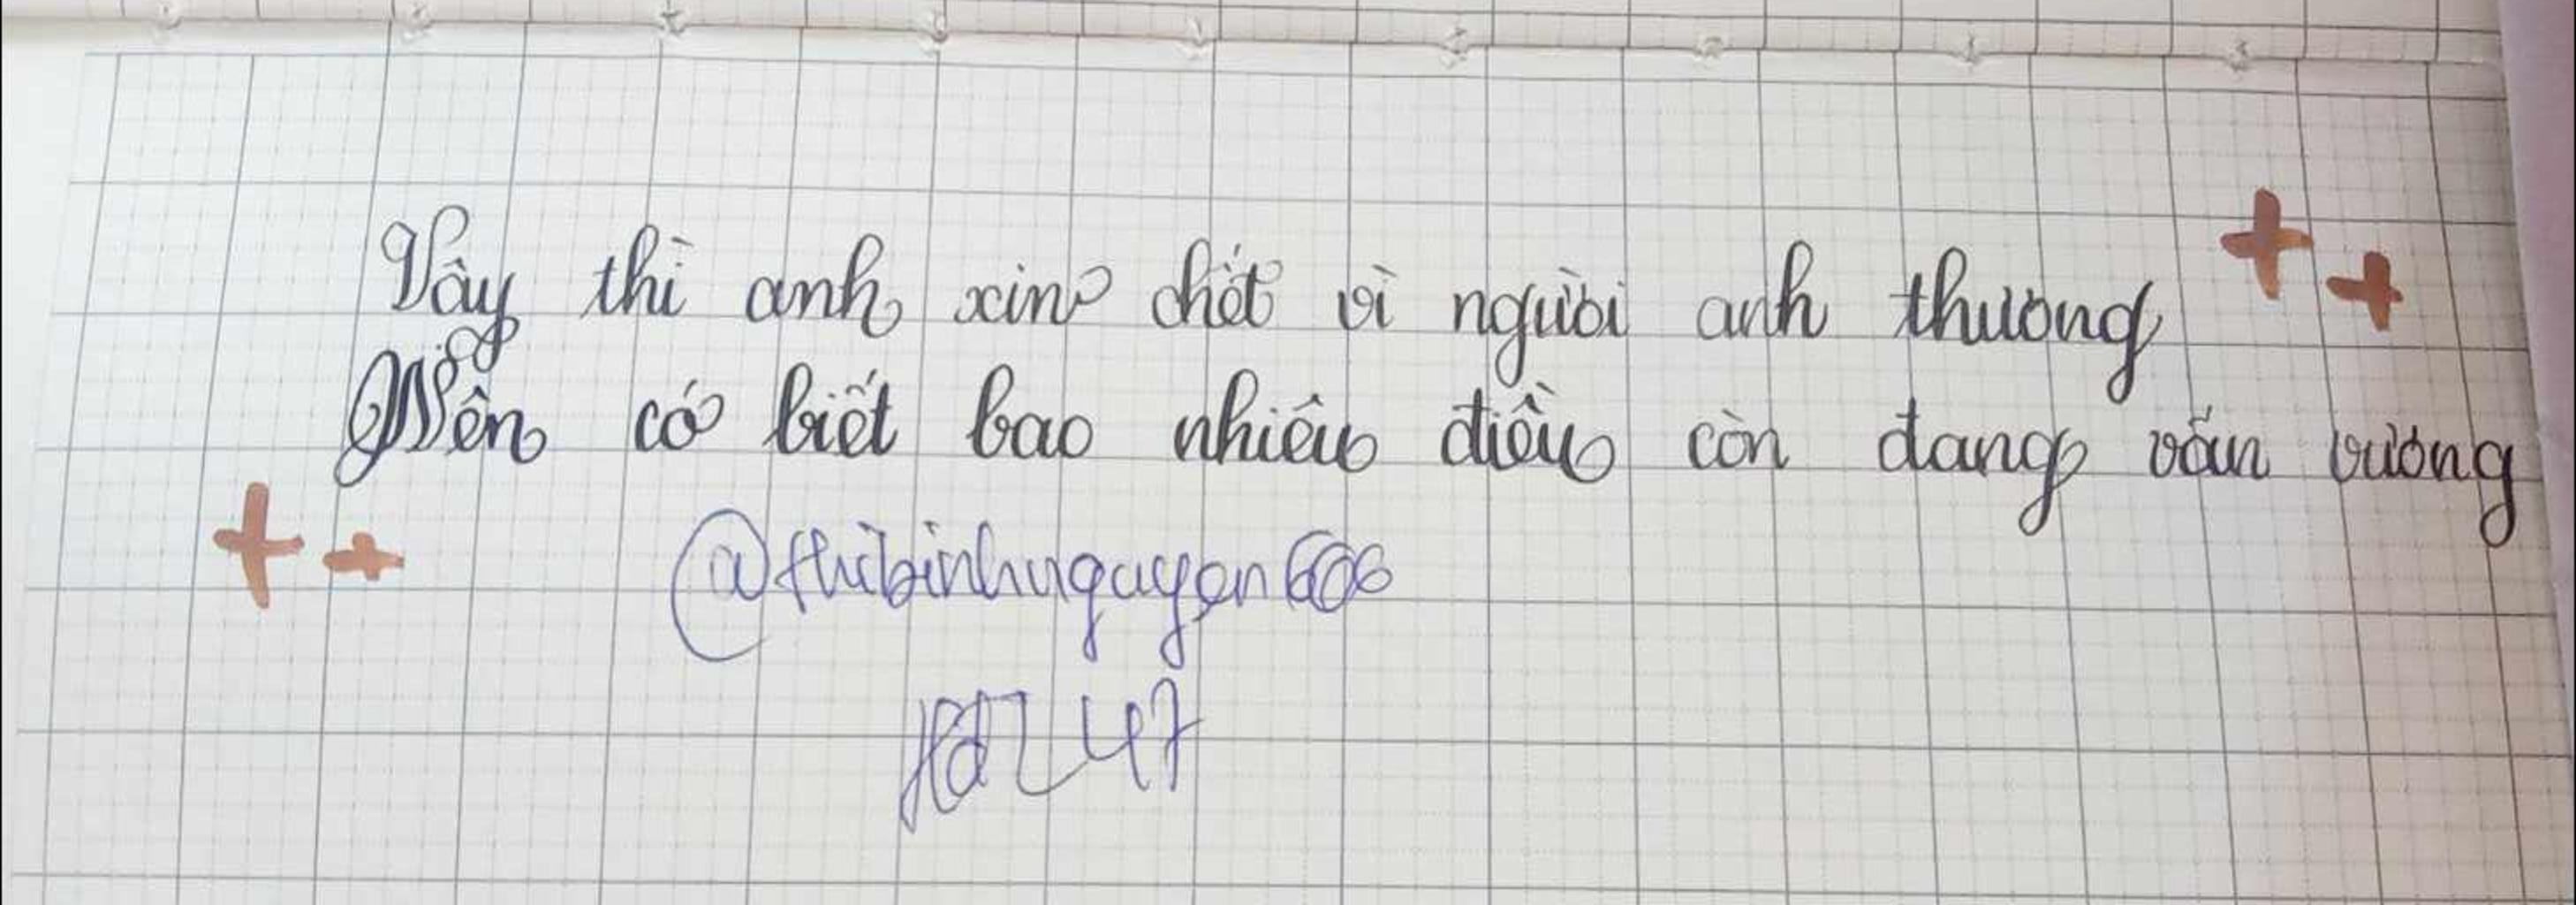 Vậy thì anh xin chết vì người anh thương
Nên có biết bao nhiêu điều còn đang vấn vương
@thibinhnguyen606